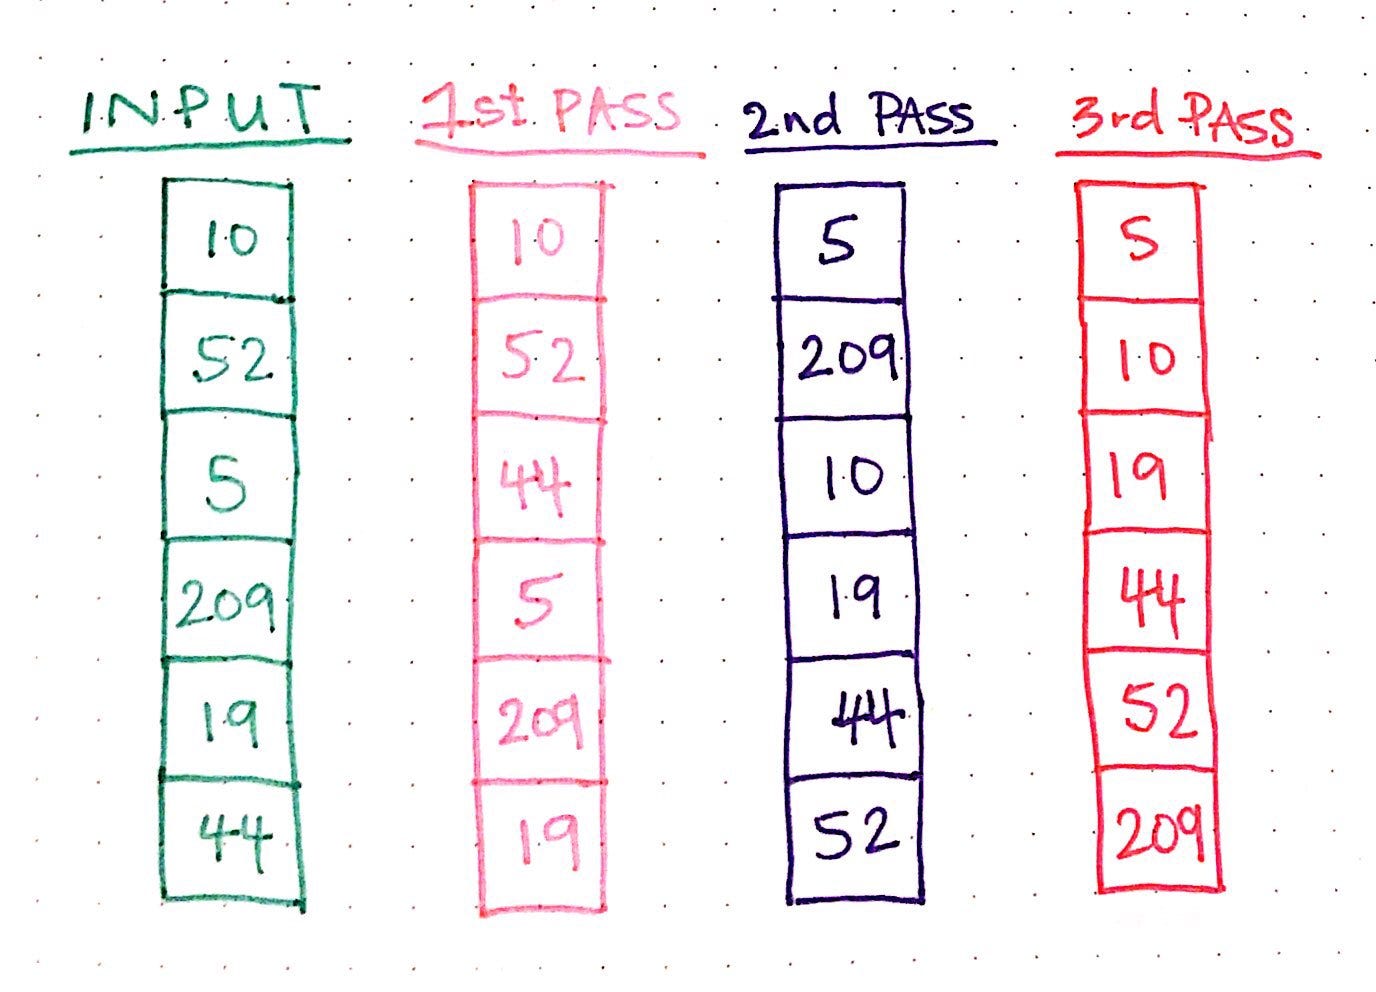 INPUT 1st PASS 2nd PASS 3rd PASS
10 10 5 5
52 52 209 10
5 44 10 19
209 5 19 44
19 209 44 52
44 19 52 209